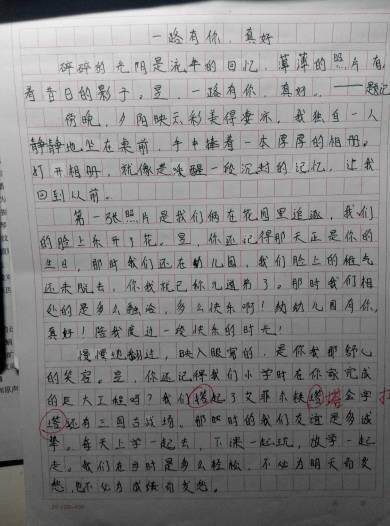 一路有你，真好
碎碎的光阴是流年的回忆，薄薄的照片有
着昔日的影子。昱，一路有你，真好。——题记
傍晚，夕阳映云彩美得要冰，我独自一人
静静地坐在桌前，手中捧着一本厚厚的相册。
打开相册，就像是唤醒一段沉封的记忆，让我
回到从前。
第一张照片是我们俩在花园里追逐，我们
的脸上乐开了花。昱，你还记得那天正是你的
生日，那时我们还在幼儿园，我们脸上的稚气
还未脱去，你我就已你儿遇有了。那时我们相
处的是多么融洽，多么快乐啊！幼幼儿园有你，
真好！陪我度过一段快乐的时光！
慢慢地翻过，映入眼帘的，是你我那舒心
的笑容。昱，你还记得我们小学时在你家完成
的巨大工程吗？我们搭起了艾菲尔铁塔金字
塔还有三国古战场。那时的我们友谊是多诚
挚。每天上学一起去，下课一起玩，放学一起
走。我们在当时是多么轻松，不必为明天而发
愁，也不必为成绩而发愁。
塔